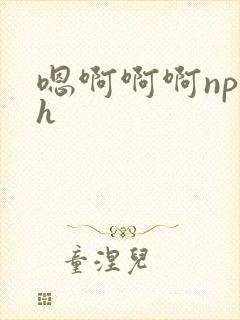 嗯啊啊啊np
h
童涅兒